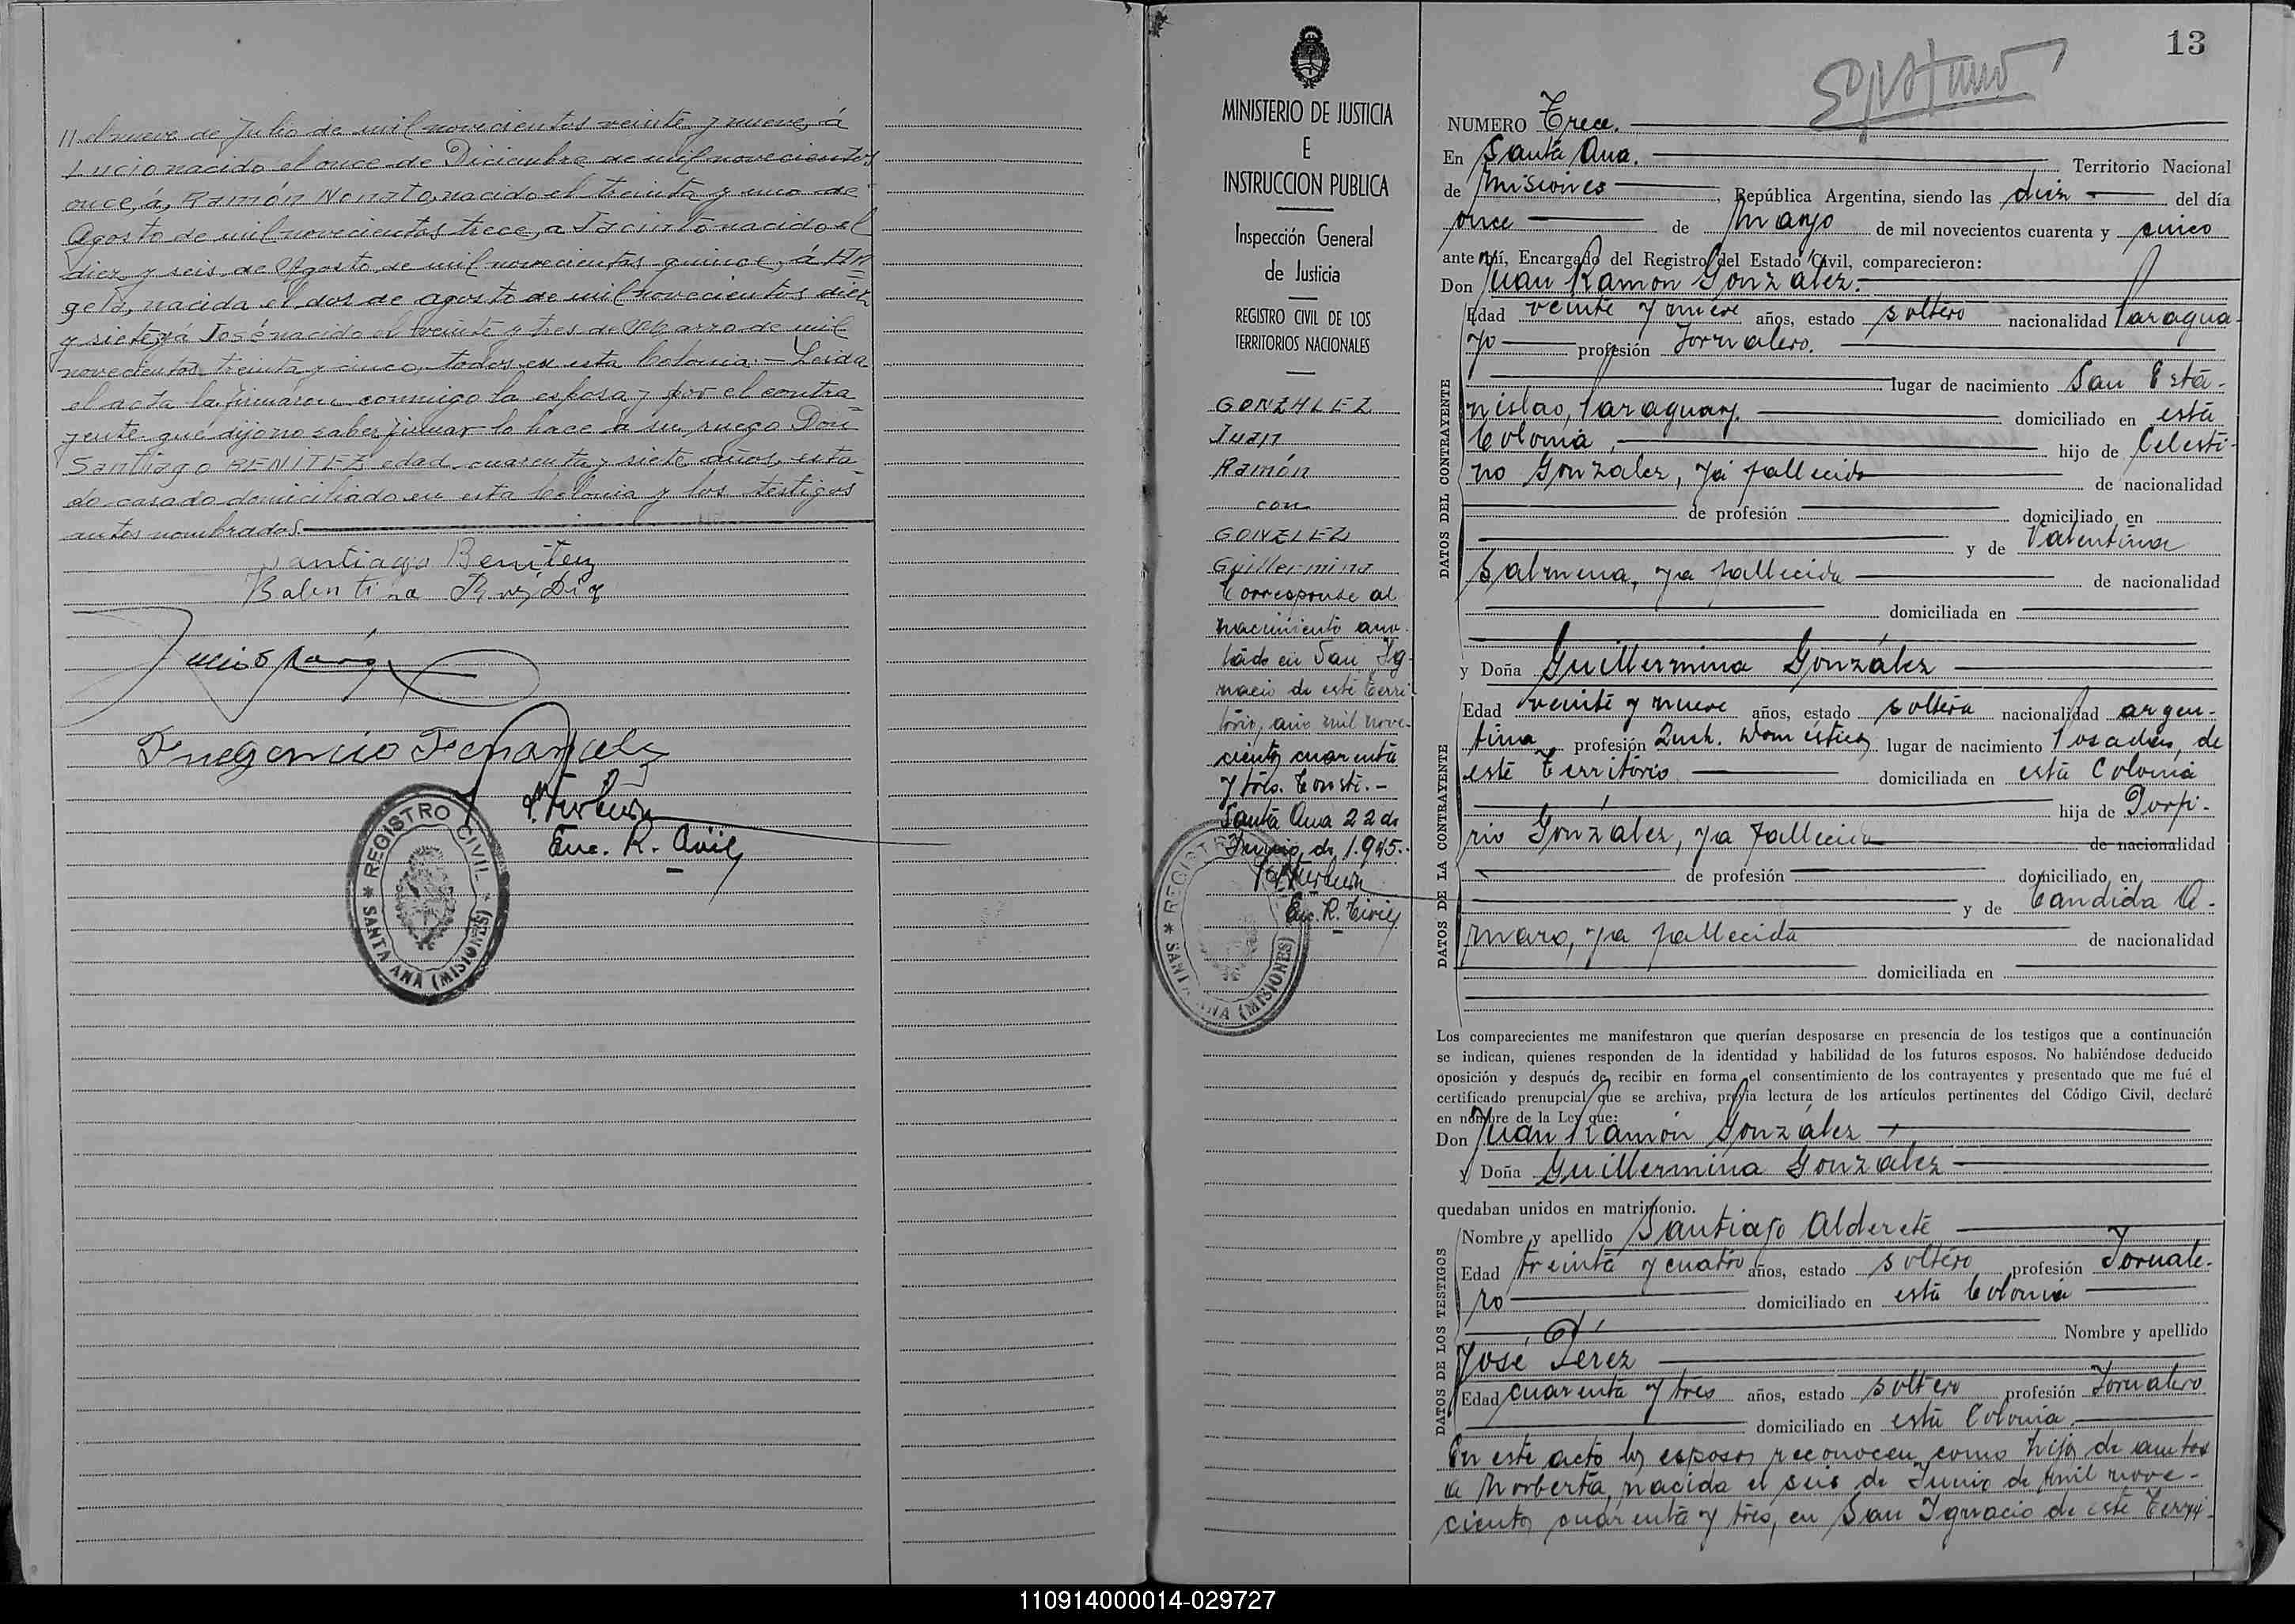 // el nueve de Julio de mil novecientos veinte y nueve, á
Lucio nacido el once de Diciembre de mil novecientos
once, á, Ramón Nonato, nacido el treinta y uno de
Agosto de mil novecientos trece, a Jacinto nacido el
diez y seis de Agosto de mil novecientos quince, á An
gela, nacida el dos de agosto de mil novecientos diez
y siete, y á José nacido el veinte y tres de Marzo de mil
novecientos treinta y cinco, todos en esta Colonia.- Leida
el acta la firmaron conmigo la esposa y por el contra
yente que dijo no saber firmar lo hace a su ruego Don
Santiago BENITEZ edad cuarenta y siete años, esta
do casado domiciliado en esta Colonia y los testigos
antes nombrados.
Santiago Benitez
Balentina
Enc. R. Civil
REGISTRO CIVIL
* SANTA ANA (MISIONES) *
MINISTERIO DE JUSTICIA
E
INSTRUCCION PUBLICA
Inspección General
de Justicia
REGISTRO CIVIL DE LOS
TERRITORIOS NACIONALES
GONZALEZ
Juan
Ramón
con
GONZLEZ
Guillermina
Corresponde al
nacimiento ano
tado en San Ig
nacio de este Terri
torio, año mil nove-
cientos cuarenta
y tres. Conste.-
Santa Ana 22 de
Junio de 1.945.-
Enc. R. Civil
REGISTRO
* SANTA ANA (MISIONES)
13
NUMERO Trece.
En Santa Ana. Territorio Nacional
de Misiones, República Argentina, siendo las diez del día
once de Mayo de mil novecientos cuarenta y cinco
ante mí, Encargado del Registro del Estado Civil, comparecieron:
Don Juan Ramon Gonzalez.
Edad veinte y nueve años, estado soltero nacionalidad Paragua-
yo profesión Jornalero.
lugar de nacimiento San Esta-
nislao, Paraguay. domiciliado en esta
Colonia, hijo de Celesti-
no Gonzalez, ya fallecido de nacionalidad
de profesión domiciliado en
y de Valentina
Salmena, ya fallecida de nacionalidad
domiciliada en
DATOS DEL CONTRAYENTE
y Doña Guillermina González
Edad veinte y nueve años, estado soltera nacionalidad argen-
tina profesión Queh. Domésticos lugar de nacimiento Posadas, de
este Territorio domiciliada en esta Colonia
hija de Porfi-
rio González, ya fallecido de nacionalidad
de profesión domiciliado en
y de Candida A-
maro, ya fallecida de nacionalidad
domiciliada en
DATOS DE LA CONTRAYENTE
Los comparecientes me manifestaron que querían desposarse en presencia de los testigos que a continuación
se indican, quienes responden de la identidad y habilidad de los futuros esposos. No habiéndose deducido
oposición y después de recibir en forma el consentimiento de los contrayentes y presentado que me fué el
certificado prenupcial que se archiva, previa lectura de los artículos pertinentes del Código Civil, declaré
en nombre de la Ley que:
Don Juan Ramón González
y Doña Guillermina Gonzalez
quedaban unidos en matrimonio.
Nombre y apellido Santiago Alderete
Edad treinta y cuatro años, estado soltero profesión Jornale-
ro domiciliado en esta Colonia
Nombre y apellido
José Pérez
Edad cuarenta y tres años, estado soltero profesión Jornalero
domiciliado en esta Colonia.
DATOS DE LOS TESTIGOS
En este acto los esposos reconocen como hija de ambos
a Norberta, nacida el seis de Junio de mil nove-
cientos cuarenta y tres, en San Ignacio de este Terri-
110914000014-029727